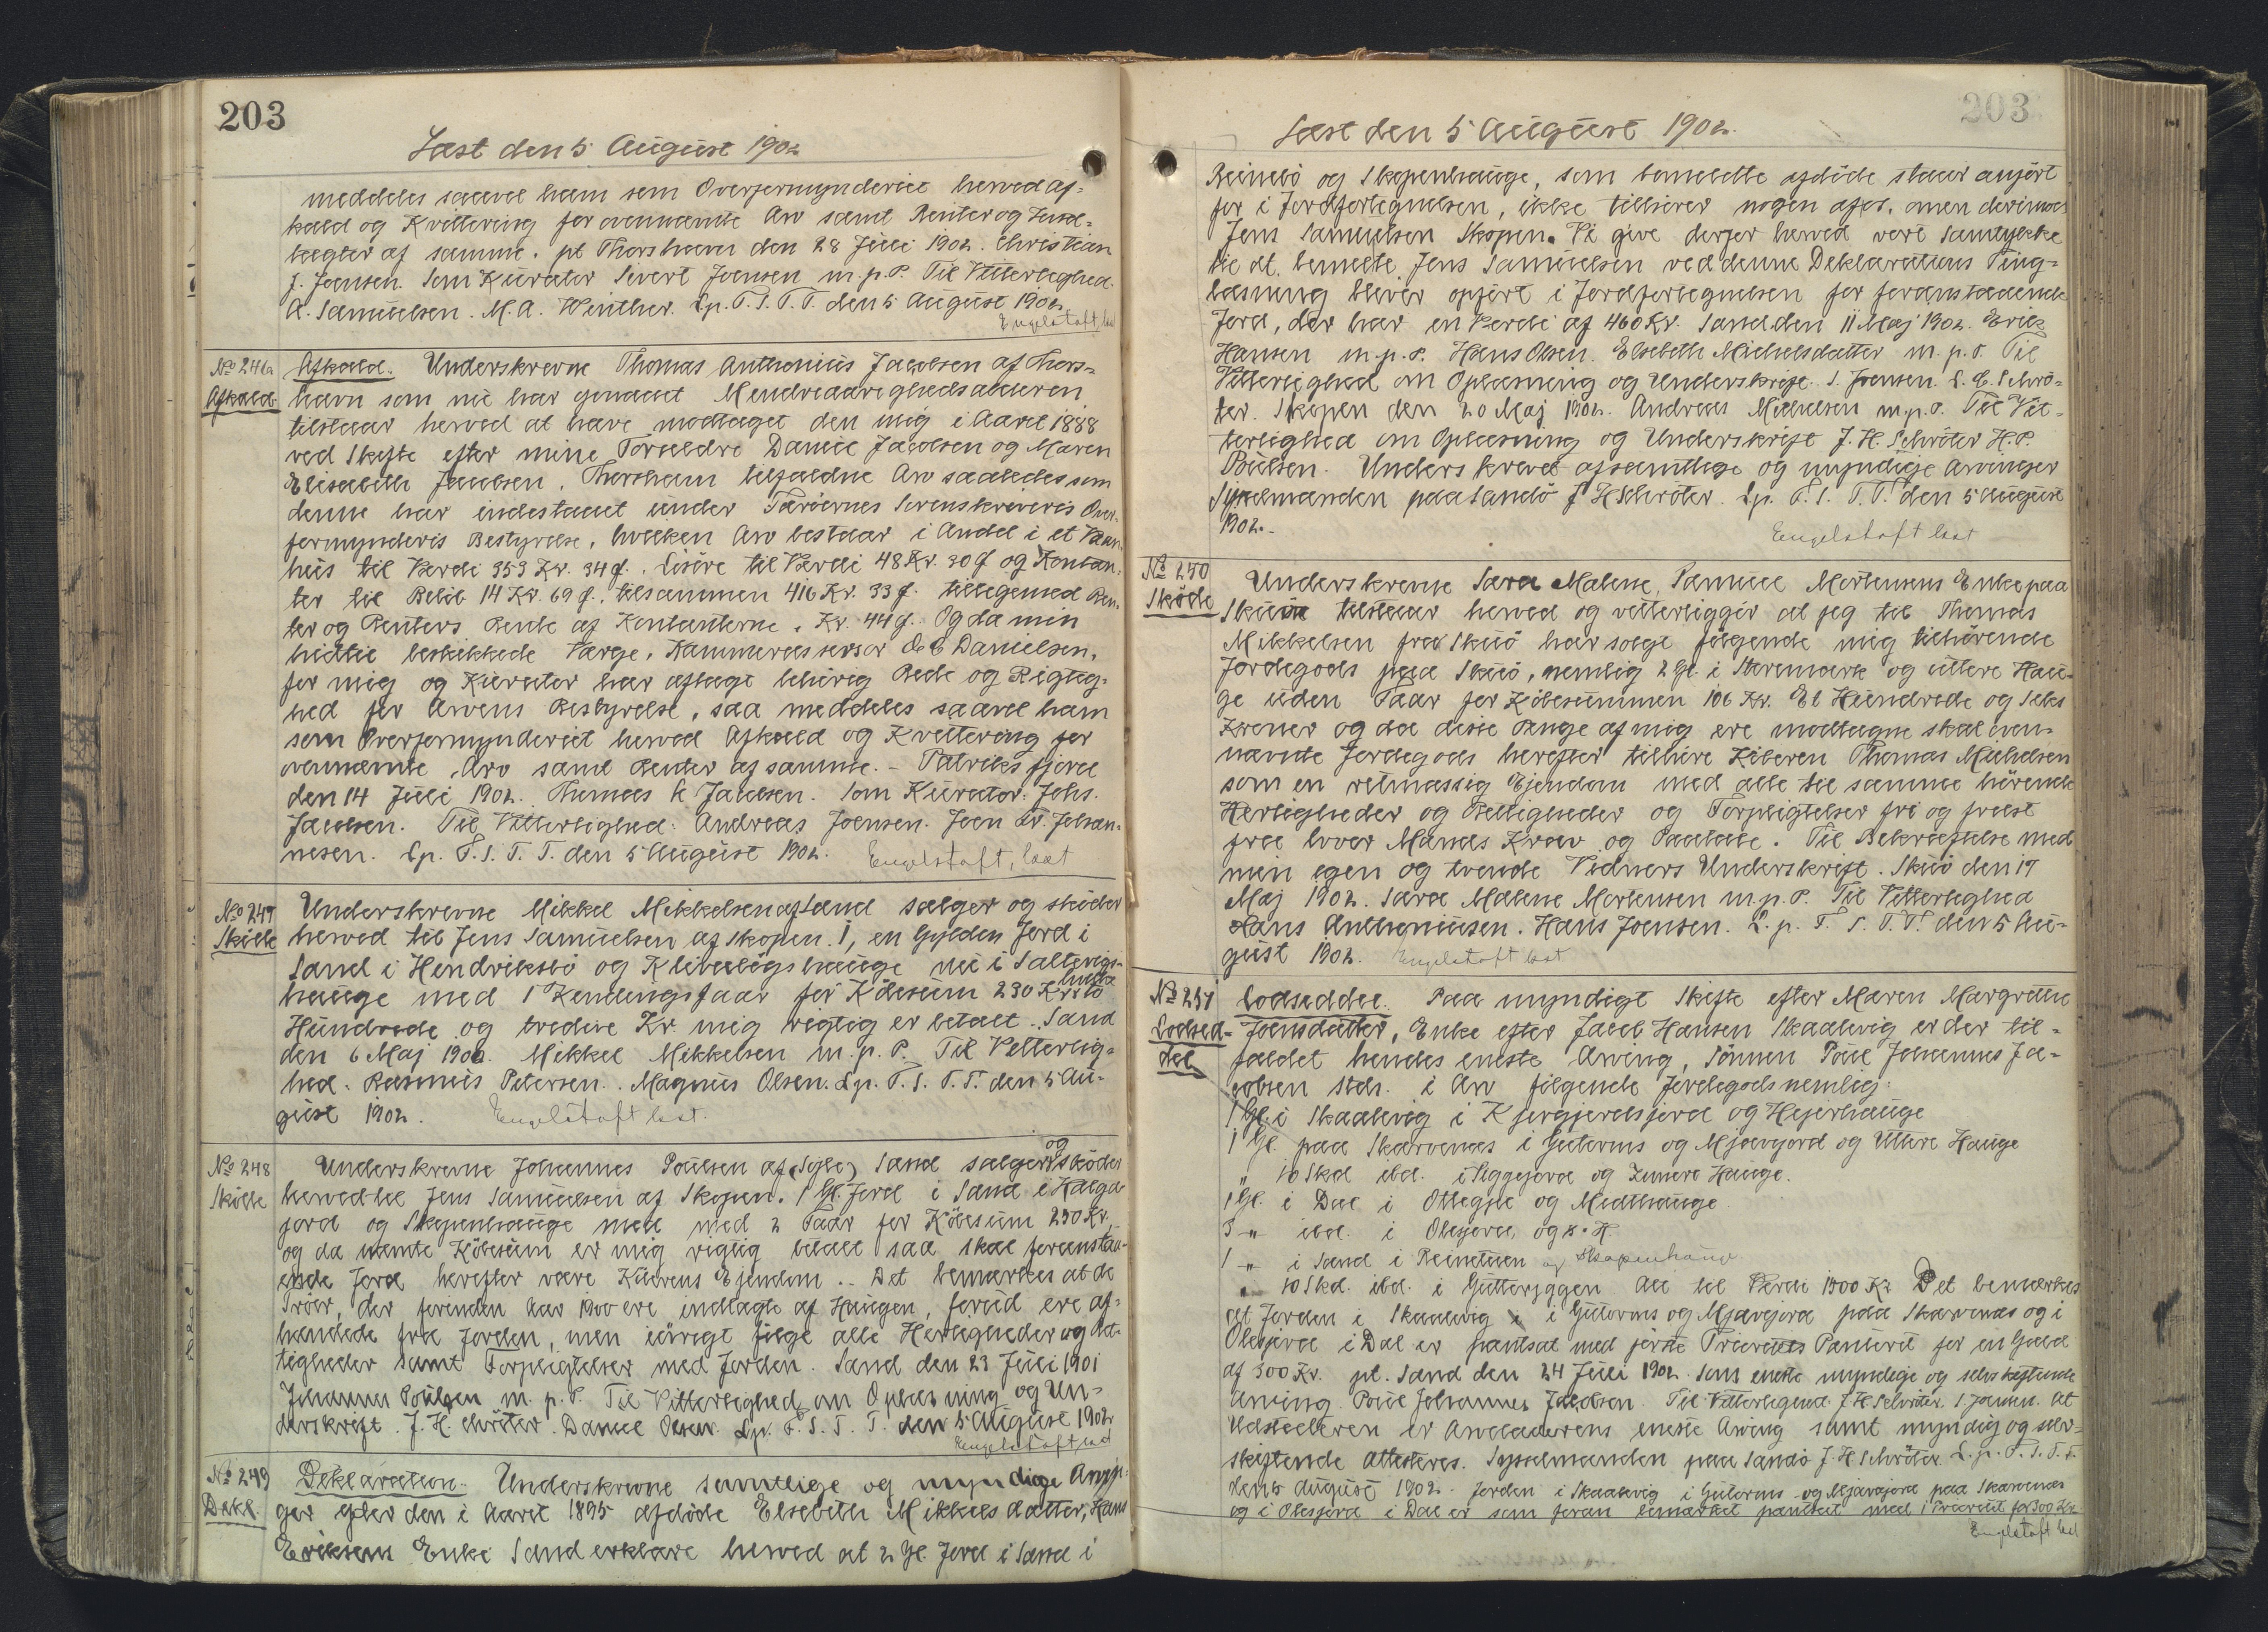 203
Læst den 5 August 1902
meddeles saavel ham som Overformynderiet herved Af-
kald og Kvittering for ovennævnte Arv samt Renter og
af samme. pt Thorshavn den 28 Juli 1902. Christian
J. Joensen. Som Kurator Sivert Joensen m.p.P. Til Vitterlighed.
A. Samuelsen. M.A. Winther. Lp. F.S.T.T. den 5 August 1902.
Engelstoft
No 246a
Afkald
Afkald. Underskrevne Thomas Anthonius Jacobsen af Thors-
havn som nu har opnaaet Myndighedsalderen
tilstaar herved at have modtaget den mig i Aaret 1888
ved Skifte efter mine Forældre Daniel Jacobsen og Maren
Elisabeth Jacobsen, Thorshavn tilfaldne Arv saaledes som
denne har indestaaet under Færøernes Sorenskriveris Over-
formynderis Bestyrelse, hvilken Arv bestaar i Andel i et Vaan-
hus til Værdi 353 Kr. 34 Ø. Løsøre til Værdi 48 Kr. 30 Ø og Kontan-
ter til Beløb 14 Kr. 69 Ø. tilsammen 416 Kr. 33 Ø. tilligemed Ren-
ter og Renters Rente af Kontanterne. Kr. 44 Ø. Og da min
hidtil beskikkede Værge, Kammerassessor O C Danielsen,
for mig og Kurator har aflagt behørig Rede og Rigtig-
hed for Arvens Bestyrelse, saa meddeles saavel ham
som Overformynderiet herved Afkald og Kvittering for
ovennævnte Arv samt Renter af samme. - Patriksfjord
den 14 Juli 1902. Thomas A Jacobsen. Som Kurator: Johs.
Jacobsen. Til Vitterlighed: Andreas Joensen. Joen Kr. Johan-
nesen. Lp. F.S.T.T. den 5 August 1902. Engelstoft, læst
No 247
Skøde
Underskrevne Mikkel Mikkelsen af Sand sælger og skøder
herved til Jens Samuelsen af Skopen. 1, en Gylden Jord i
Sand i Hendriksbø og nu i
hauge med 1 Kendingsfaar for Købesum 230 Kr to
Hundrede og tredive Kr. mig rigtig er betalt. Sand
den 6 Maj 1902. Mikkel Mikkelsen m.p.P. Til Vitterlig-
hed. Rasmus Petersen. Magnus Olsen. Lp. F.S.T.T. den 5 Au-
gust 1902. Engelstoft læst.
No 248
Skøde
Underskrevne Johannes Poulsen af Sand sælger og skøder
herved til Jens Samuelsen af Skopen. 1 Gl. Jord i Sand i Halga
jord og Skopenhauge med 2 Faar for Købesum 250 Kr,
og da nævnte Købesum er mig rigtig betalt saa skal foranstaa-
ende Jord herefter være Køberens Ejendom. - Det bemærkes at de
Trøer, der forinden Aar 1900 ere indtagte af Haugen, forud ere af-
hændede fra Jorden, men iøvrigt følge alle Herligheder og Ret-
tigheder samt Forpligtelser med Jorden. Sand den 23 Juli 1901
Johannes Poulsen m.p.P. Til Vitterlighed om Oplæsning og Un-
derskrift. J.H. Schröter. Daniel Olsen. Lp. F.S.T.T. den 5 August 1902
Engelstoft
No 249
Dekl.
Deklaration. Underskrevne samtlige og myndige Arvin-
ger efter den i Aaret 1895 afdøde Elsebeth Mikkelsdatter, Hans
Eriksens Enke Sand erklære herved at 2 Gl. Jord i Sand i
203
Læst den 5 August 1902.
Reinebø og Skopenhauge, som bemeldte afdøde staar anført
for i Jordfortegnelsen, ikke tilhører nogen af os, men derimod
Jens Samuelsen Skopen. Vi give derfor herved vort Samtykke
til at bemeldte Jens Samuelsen ved denne Deklarations Ting-
læsning bliver opført i Jordfortegnelsen for foranstaaende
Jord, der har en Værdi af 460 Kr. Sand den 11 Maj 1902. Erik
Hansen m.p.P. Hans Olsen. Elsebeth Michelsdatter m.p.P. Til
Vitterlighed om Oplæsning og Underskrift. S. Joensen. S.C. Schrö-
ter. Skopen den 20 Maj 1902. Andreas Mikkelsen m.p.P. Til Vit-
terlighed om Oplæsning og Underskrift J.H. Schröter H.P.
Poulsen. Underskrevet af samtlige og myndige Arvinger
Sysselmanden paa Sandø J H Schröter. Lp. F.S.T.T. den 5 August
1902.
Engelstoft læst
No 250
Skøde
Underskrevne Sara Malene, Samuel Mortensens Enke paa
Skuø tilstaar herved og vitterliggør at jeg til Thomas
Mikkelsen fra Skuø har solgt følgende mig tilhørende
Jordegods paa Skuø, nemlig 2 Gl. i Støremark og uttere Hau-
ge uden Faar for Købesummen 106 Kr. Et Hundrede og Seks
Kroner og da disse Penge af mig ere modtagne skal oven-
nævnte Jordegods herefter tilhøre Køberen Thomas Mikkelsen
som en retmæssig Ejendom med alle til samme hørende
Herligheder og Rettigheder og Forpligtelser fri og frelst
fra hver Mands Krav og Paatale. Til Bekræftelse med
min egen og tvende Vidners Underskrift. Skuø den 17
Maj 1902. Sara Malene Mortensen m.p.P. Til Vitterlighed
Hans Anthoniussen. Hans Joensen. L.p. F.S.T.T. den 5 Au-
gust 1902. Engelstoft læst
No 251
Lodsed-
del
Lodseddel. Paa myndigt Skifte efter Maren Margrethe
Joensdatter, Enke efter Jacob Hansen Skaalevig er der til-
faldet hendes eneste Arving, Sønnen Poul Johannes Ja-
cobsen stds. i Arv følgende Jordegods nemlig:
1 Gl. i Skaalevig i Kjergjerdsjord og Hejerhauge
1 Gl. paa Skarvenæs i Gutorms og Mjavajord og Uttere Hauge
" 10 Skd ibd. i Piggejord og Innere Hauge.
1 Gl. i Dal i Ottegjie og Midthauge
3 - " ibd. i Olesjord, og s. H.
1 - " i Sand i Reinetuen og Skopenhauge
" 10 Skd. ibd. i Gutteryggen Alt til Værdi 1500 Kr. Det bemærkes
at Jorden i Skaalevig i Gutorms og Mjavajord paa Skarvenæs og i
Olesjord i Dal er pantsat med første Prioritets Panteret for en Gæld
af 300 Kr. pt. Sand den 24 Juli 1902. Som eneste myndige og selvskiftende
Arving Poul Johannes Jacobsen. Til Vitterlighed J.H. Schröter. S. Joensen. At
Udstederen er Arveladerens eneste Arving samt myndig og selv-
skiftende attesteres. Sysselmanden paa Sandø J.H. Schröter L.p. F.S.T.T.
den 5 August 1902. Jorden i Skaalevig i Gutorms og Mjavajord paa Skarvenæs
og i Olesjord i Dal er som foran bemærket pantsat med 1 Prioritet for 300 Kr.
Engelstoft